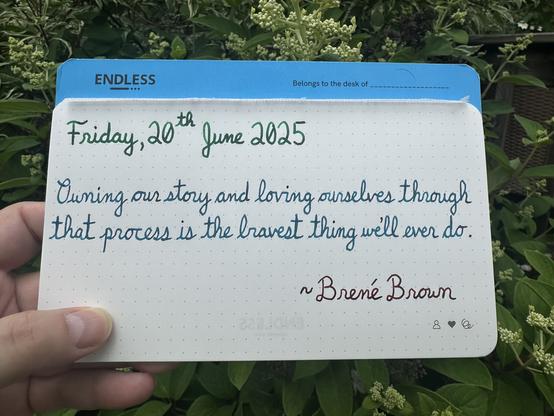 ENDLESS
Belongs to the desk of
Friday, 20th June 2025
Owning our story and loving ourselves through
that process is the bravest thing we'll ever do.
~ Brené Brown
ENDLESS